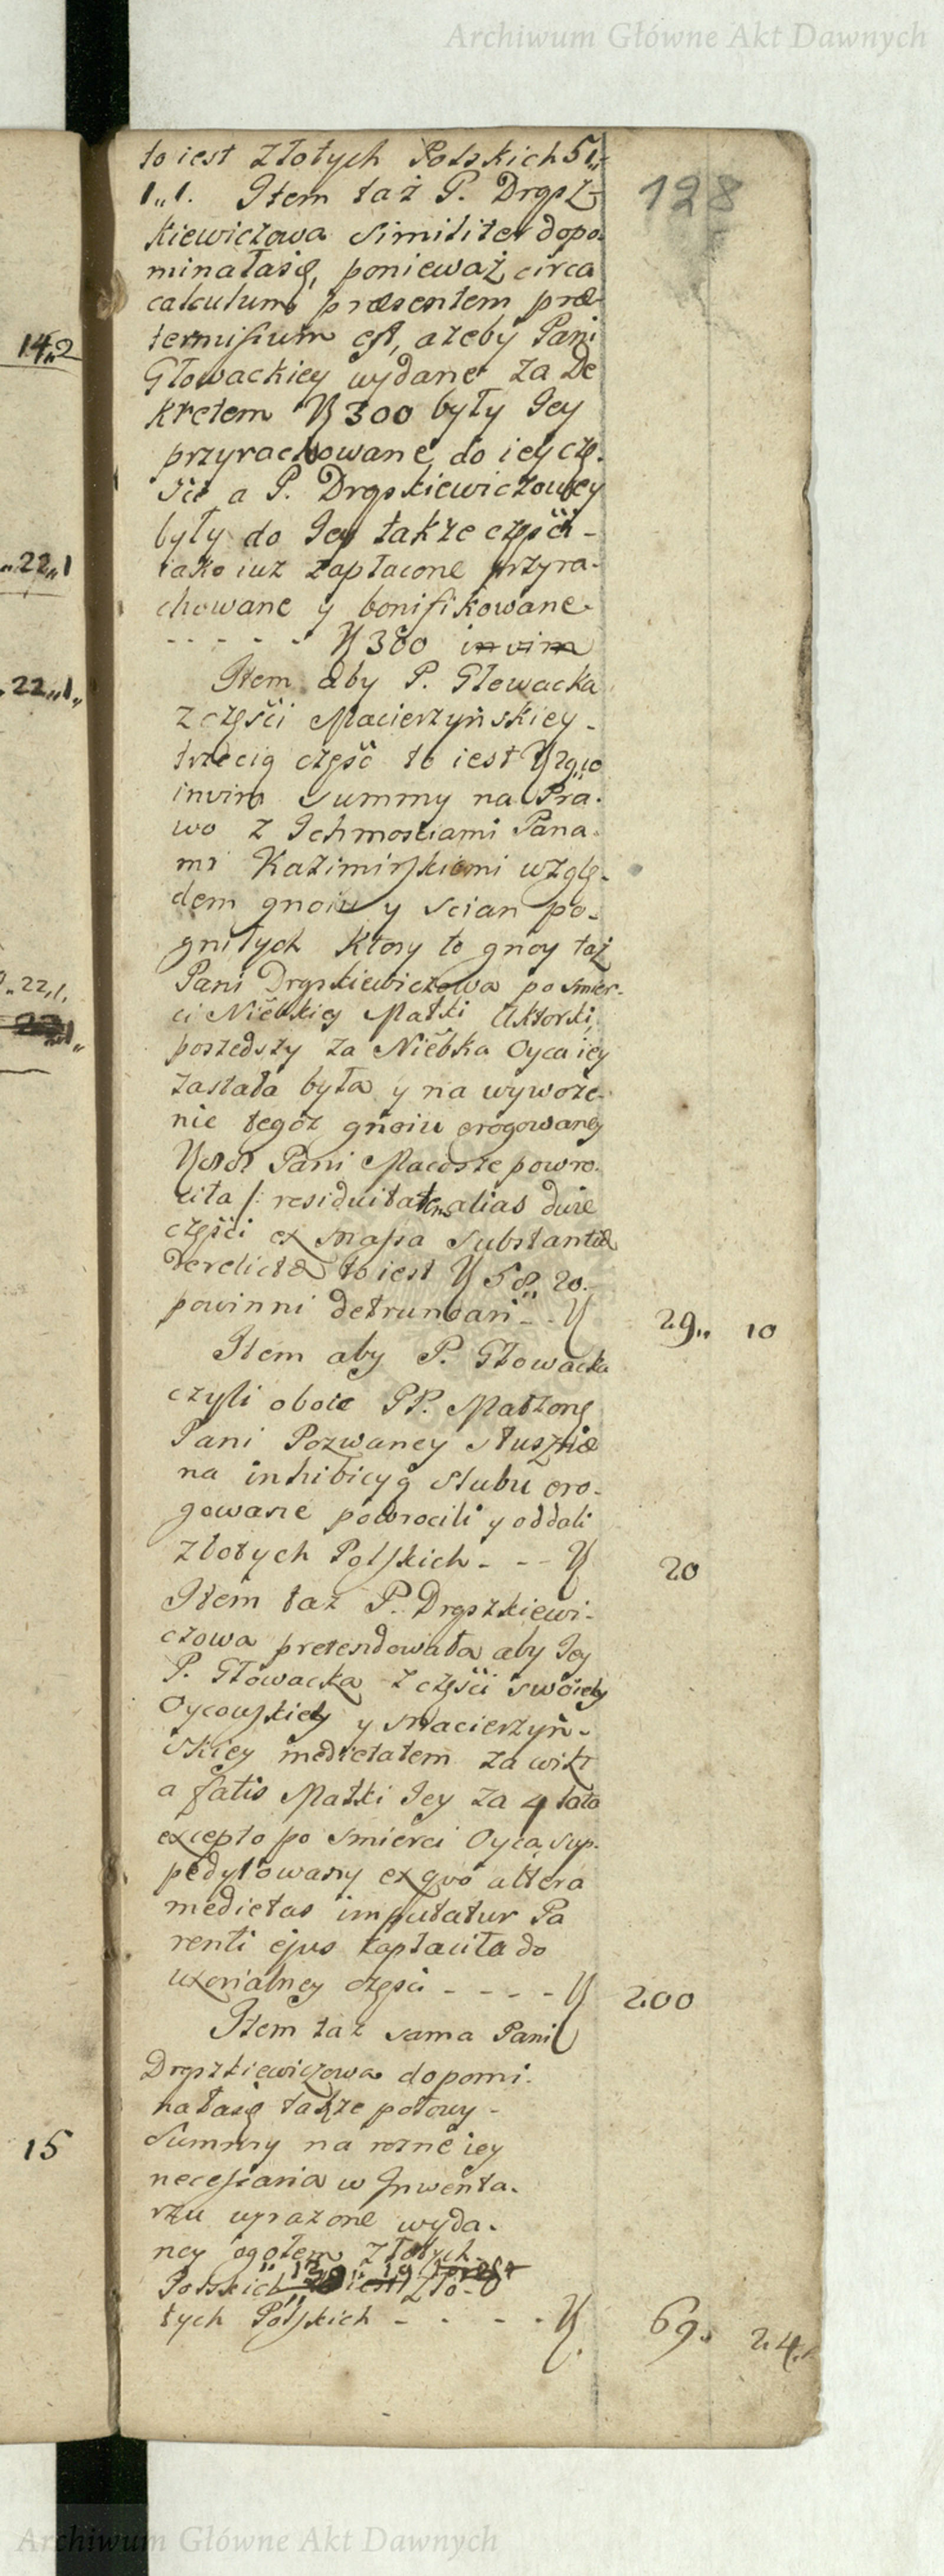 Archiwum Główne Akt Dawnych
128
to iest Złotych Polskich 51„
1„1. Item taż P. Dręsz-
kiewiczowa similiter dopo-
minałasię, ponieważ circa
calculum præsentem præ-
termissum est, ażeby Pani
Głowackiey wydane za De
kretem Zł 300 były Jey
przyrachowane do iey czę-
ści a P. Dręskiewiczowey
były do Jey także części -
iako iuz zapłacone przyra-
chowane y bonifikowane.
- - - - - Zł 380 in vim
Item aby P. Głowacka
z części Macierzyńskiey -
trzecią część to iest Zł 29„10
invim summy na Pra-
wo z Ichmosciami Pana-
mi Kazimirskiemi wzglę-
dem gnoiu y scian po-
gniłych ktory to gnoy taż
Pani Dręskiewiczowa po smier-
ci Niebki Matki Aktorki,
poszedszy za Niebka Oyca iey
zastała była y na wywoze-
nie tegoż gnoiu erogowaney
Zł 88 Pani Macosze powro-
ciła /: residuitatem alias dwie
części ex massa substantiæ
derelictæ to iest Zł 58„ 20.
powinni detruncari - - Zł 29„ 10
Item aby P. Głowacka
czyli oboie PP. Małżonę
Pani Pozwaney słusznie
na inhibicyą slubu ero-
gowane powrocili y oddali
złotych Polskich - - - Zł 20
Item taż P. Dręszkiewi-
czowa pretendowała aby Jey
P. Głowacka z części swoiey
Oycowskiey y Macierzyń-
skiey medietatem za wikt
a fatis Matki Jey za 4 lata
excepto po smierci Oyca sup-
pedytowany ex quo altera
medietas imputatur Pa
renti ejus zapłaciła do
uxorialney części - - - - Zł 200
Item taż sama Pani
Dręszkiewiczowa dopomi-
nałasię także połowy -
Summy na rozne iey
necessaria w Inwenta-
rzu wyrażone wyda-
ney ogołem Złotych
Polskich Zło-
tych Polskich - - - - Zł. 69„ 24„
14„2
„22„1
„22„1„
„22„1.
15
Archiwum Główne Akt Dawnych